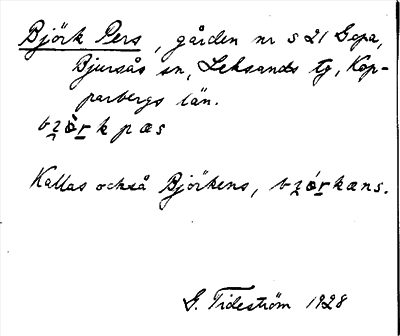 Björk Pers, gården nr 5 21 Sepa,
Bjursås sn, Leksands tg, Kop-
parbergs län.
bʐòrk pæs
Kallas också Björkens, bʐórkæns.
G. Tideström 1928